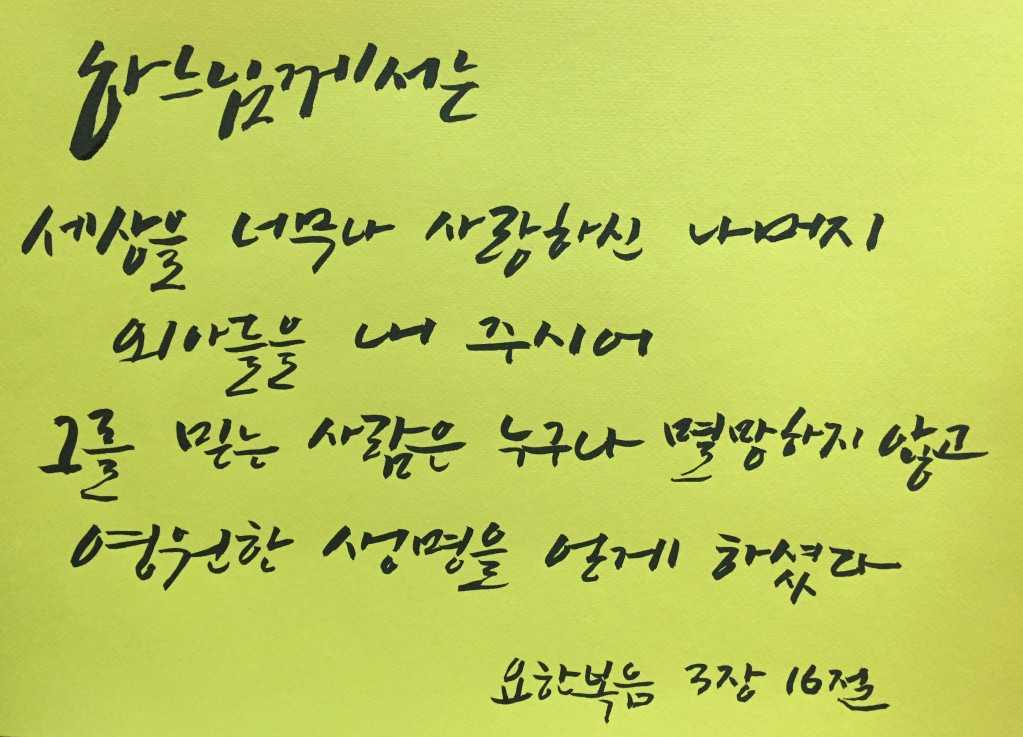 하느님께서는
세상을 너무나 사랑하신 나머지
외아들을 내 주시어
그를 믿는 사람은 누구나 멸망하지 않고
영원한 생명을 얻게 하셨다
요한복음 3장 16절